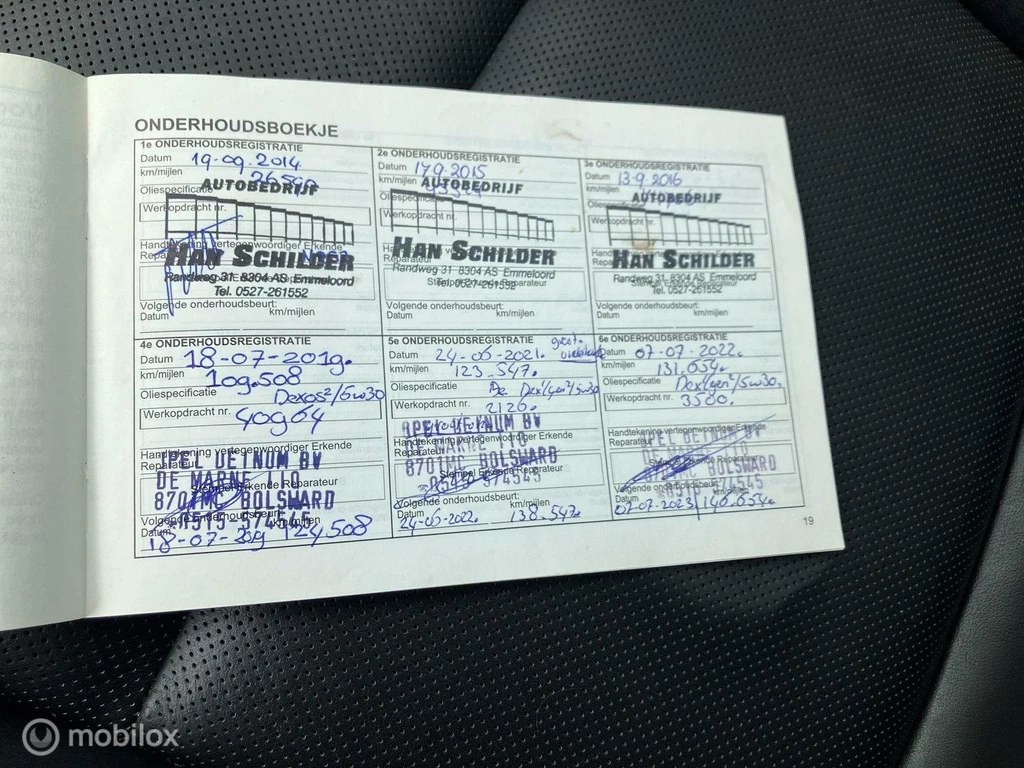 ONDERHOUDSBOEKJE
1e ONDERHOUDSREGISTRATIE
Datum 19-09-2014
km/mijlen
Oliespecificatie
AUTOBEDRIJF
Werkopdracht nr.
Handtekening vertegenwoordiger Erkende
HAN SCHILDER
Randweg 31 8304 AS Emmeloord
Tel. 0527-261552
Volgende onderhoudsbeurt:
Datum km/mijlen
2e ONDERHOUDSREGISTRATIE
Datum 17-9-2015
km/mijlen
AUTOBEDRIJF
Oliespecificatie
Werkopdracht nr.
HAN SCHILDER
Reparateur
Randweg 31 8304 AS Emmeloord
Tel. 0527-261552
Volgende onderhoudsbeurt:
Datum km/mijlen
3e ONDERHOUDSREGISTRATIE
Datum 13-9-2016
km/mijlen
AUTOBEDRIJF
Oliespecificatie
Werkopdracht nr.
HAN SCHILDER
Randweg 31 8304 AS Emmeloord
Tel. 0527-261552
Volgende onderhoudsbeurt:
Datum km/mijlen
4e ONDERHOUDSREGISTRATIE
Datum 18-07-2019.
km/mijlen 109.508
Oliespecificatie Dexos2/5w30
Werkopdracht nr. 40964
Handtekening vertegenwoordiger Erkende
Reparateur
OPEL DETNUM BV
DE MARNE 110
Stempel Erkende Reparateur
8701MC BOLSWARD
0515-574545
Volgende onderhoudsbeurt: km/mijlen
Datum 18-07-2019 124.508
5e ONDERHOUDSREGISTRATIE
Datum 24-06-2021. groot. onderhoud
km/mijlen 123.547.
Oliespecificatie Dex1/gen2/5w30
Werkopdracht nr. 2126.
OPEL DETNUM BV
Handtekening vertegenwoordiger Erkende
DE MARNE 110
Reparateur
8701MC BOLSWARD
Stempel Erkende Reparateur
0515-574545
Volgende onderhoudsbeurt:
Datum km/mijlen
24-06-2022. 138.547.
6e ONDERHOUDSREGISTRATIE
Datum 07-07-2022.
km/mijlen 131.654.
Oliespecificatie Dex1/gen2/5w30.
Werkopdracht nr. 3580.
Handtekening vertegenwoordiger Erkende
Reparateur
OPEL DETNUM BV
BOLSWARD
Volgende onderhoudsbeurt:
Datum km/mijlen
07-07-2023 / 146.654.
19
mobilox